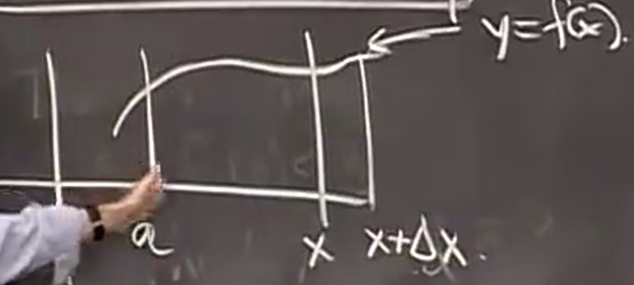 y=f(x).
a
x
x+Δx.